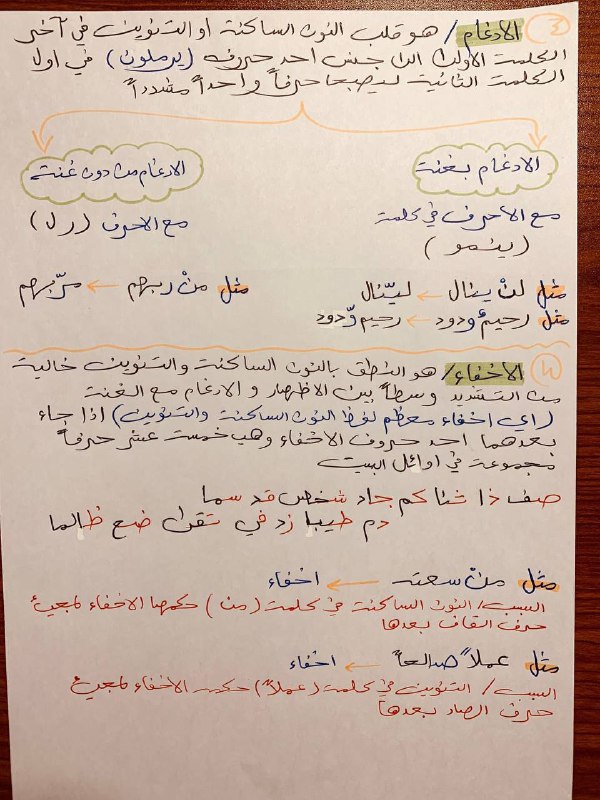 ٣ الادغام / هو قلب النون الساكنة او التنوين في آخر
الكلمة الاولى الى جنس احد حروف (يرملون) في اول
الكلمة الثانية ليصبحا حرفاً واحداً مشدداً
الادغام بغنة
الادغام من دون غنة
مع الأحرف في كلمة
(ينمو)
مع الاحرف (ر ل)
مثل لنْ ينال ← لينّال
مثل رحيمٌ ودود ← رحيم وّدود
مثل منْ ربهم ← مرّبهم
٤ الاخفاء / هو النطق بالنون الساكنة والتنوين خالية
من التشديد وسطاً بين الاظهار و الادغام مع الغنة
(اي اخفاء معظم لفظ النون الساكنة والتنوين) اذا جاء
بعدهما احد حروف الاخفاء وهي خمسة عشر حرفاً
مجموعة في اوائل البيت
صف ذا ثنا كم جاد شخص قد سما
دم طيبا زد في تقى ضع ظالما
مثل منْ سعته ← اخفاء
السبب / النون الساكنة في كلمة (من) حكمها الاخفاء لمجيئ
حرف القاف بعدها
مثل عملاً صالحاً ← اخفاء
السبب / التنوين في كلمة (عملاً) حكمه الاخفاء لمجيئ
حرف الصاد بعدها